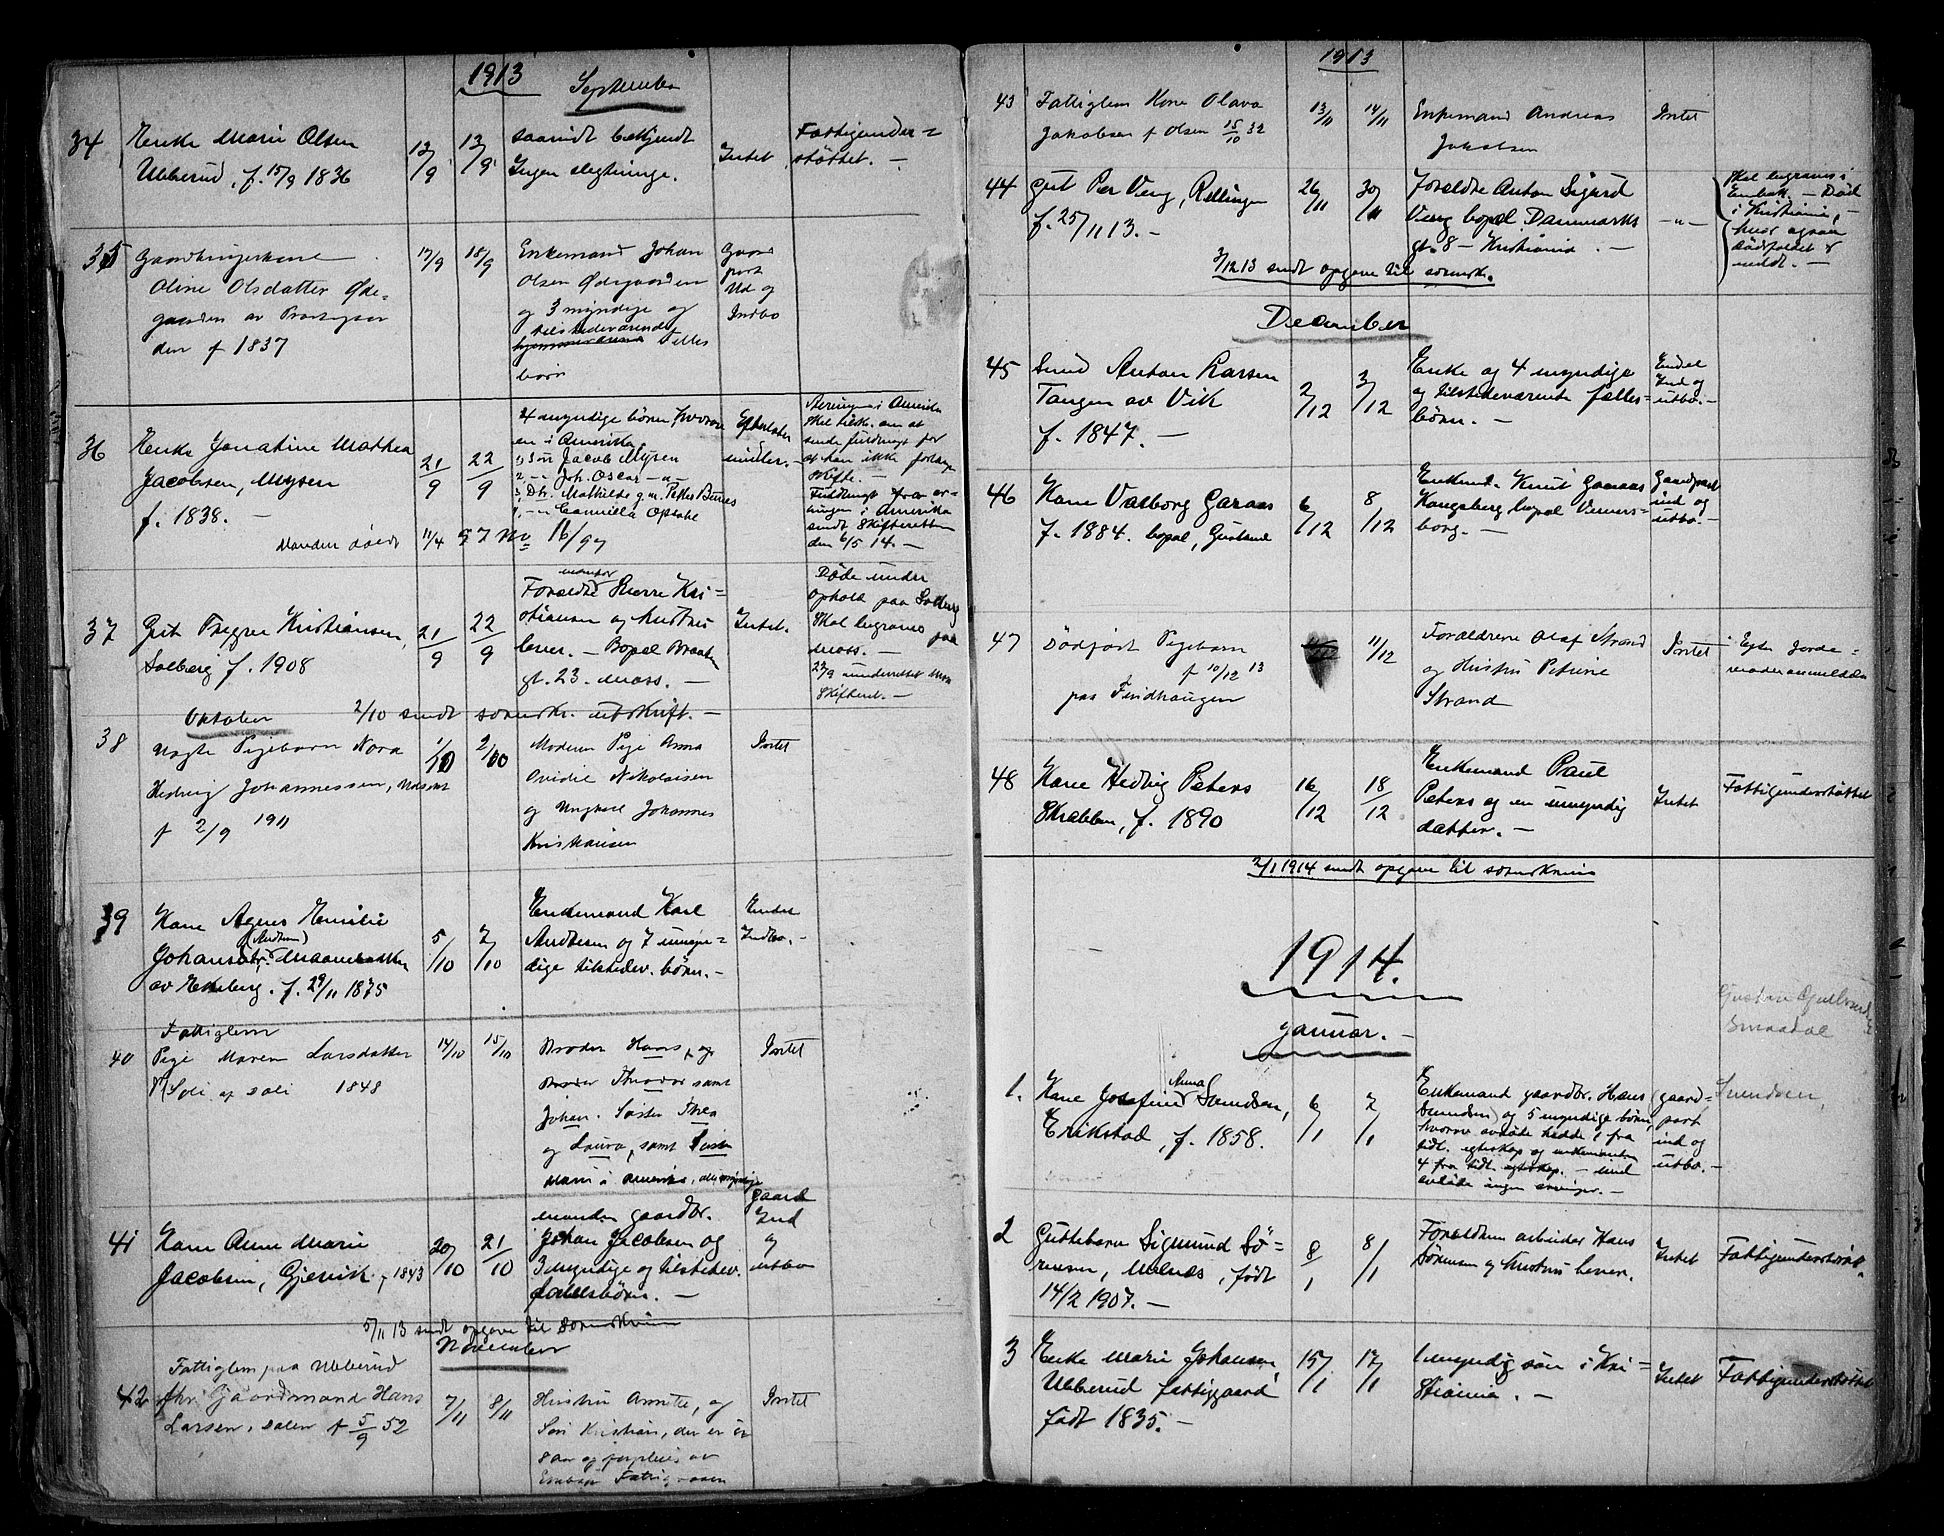 1913
September
34
Enke Marie Olsen
Ubberud, f. 15/9 1836
12/9
13/9
saavidt bekjendt
Ingen slegtninge.
Intet
Fattigunder=
støttet. —
35
Gaardbrugerkone
Oline Olsdatter Øde=
gaarden av
den f 1837
17/9
18/9
Enkemand Johan
Olsen Ødegaarden
og 3 myndige og
tilstedeværende
hjemmeværende Felles
børn
Gaard
part
Ud og
Indbo
36
Enke Jonatine Mathea
Jacobsen, Mysen
f. 1838. —
Manden døde 11/4 97 No 16/97
21/9
22/9
4 myndige børn, hvorav
en i Amerika
1, Søn Jacob Mysen
2, — Joh. Oscar —"—
3, Dtr. Mathilde g.m.
4, —"— Camilla Opsahl
Efterlater
midler. —
Arving i Amerika
skal tilskr. om at
sende fuldmagt for
at han ikke forlange
skifte.
Fuldmagt fra ar=
vingen i Amerika
sendt Skifteretten
den 6/5 14. —
37
Gut Trygve Kristiansen,
Solberg f. 1908
21/9
22/9
Foreldre Bierre Kri=
stiansen og hustru
lever. — Bopæl Braaten
gt. 23. Moss. —
Intet.
Døde under
ophold paa Solberg
Skal begraves paa
Moss. —
23/9 underrettet Moss
Skifteret. —
2/10 sendt sorenskr. utskrift. —
Oktober
38
Uægte Pigebarn Nora
Hedvig Johannessen,
f 2/9 1911
1/10
2/10
Moderen Pige Anna
Ovidie Nikolaisen
og Ungkarl Johannes
Kristiansen
Intet
39
Kone Agnes Emilie
(Andersen)
Johansdtr.
av Ekeberg. f. 29/11 1875
5/10
7/10
Enkemand Karl
Andresen og 7 umyn=
dige tilstedev. børn. —
Endel
Indbo. —
40
Fattiglem
Pige Maren Larsdatter
Soli af Soli 1848
14/10
15/10
Broder Hans, og
Broder Theodor samt
Johan. Søster Thea
og Laura, samt Søster
Marie i Amerika, alle myndige
Intet
41
Kone Anne Marie
Jacobsen, Gjervik f 1843
20/10
21/10
Manden gaardbr.
Johan Jacobsen og
3 myndige og tilstedev.
fællesbørn. —
gaard
Ind
og
utbo
5/11 13 sendt opgave til Sorenskriver
November
42
Fattiglem paa Ubberud
fhv. Gaardmand Hans
Larsen, Solen f 5/9 52
7/11
8/11
Hustru Annette, og
Søn Kristian, der er
8 aar og forpleies av
Eidsberg Fattigvæsen
Intet
1913
43
Fattiglem Kone Olava
Jakobsen f Olsen 15/10 32
13/11
14/11
Enkemand Andreas
Jakobsen
Intet
44
Gut Per Veng, Rellingen
f. 25/11 13. —
26/11
30/11
Foreldre Anton Sigurd
Veng bopæl Danmarks
gt. 8 — Kristiania. —
—"—
Skal begraves i
— Død
i Kristiania, —
hvor ogsaa
Dødsfaldet er
meldt. —
3/12 13 sendt opgave til sorensk.
December
45
Smed Anton Larsen
Tangen av Vik
f. 1847. —
2/12
3/12
Enke og 4 myndige
og tilstedeværende fælles=
børn. —
Endel
Ind og
utbo. —
46
Kone Valborg Garaas
f. 1884. bopæl,
6/12
8/12
Enkemd. Knut Garaas
Kongsberg bopæl Veners=
borg. —
Gaardpart
ind og
utbo. —
47
Dødfødt Pigebarn
f 10/12 13
paa Findhaugen
11/12
Foreldrene Olaf Strand
og Hustru Petrine
Strand
Intet
Efter Jorde=
moderanmeldelse
48
Kone Hedvig Peters
f. 1890
16/12
18/12
Enkemand Paul
Peters og en umyndig
datter. —
Intet
Fattigunderstøttet
2/1 1914 sendt opgave til sorenskriver
1914.
Januar. —
Smaadal
1.
Anna
Kone Josefine Svendsen,
Erikstad, f. 1858.
6/1
7/1
Enkemand gaardbr. Hans
Svendsen og 5 myndige børn,
hvorav avdøde hadde 1 fra
tidl. egteskap og enkemanden
4 fra tidl. egteskap. — Med
avdøde ingen arvinger. —
gaard=
part
ind og
utbo. —
Svendsen,
2
Guttebarn Sigmund Sø=
rensen, Melnes, født
14/2 1907. —
8/1
8/1
Foreldrene arbeider Hans
Sørensen og Hustru lever.
Intet
Fattigunderstøt.
3
Enke Marie Johansen
Ubberud fattiggaard
født 1835. —
15/1
17/1
1 myndig søn i Kri=
stiania. —
Intet
Fattigunderstøttet